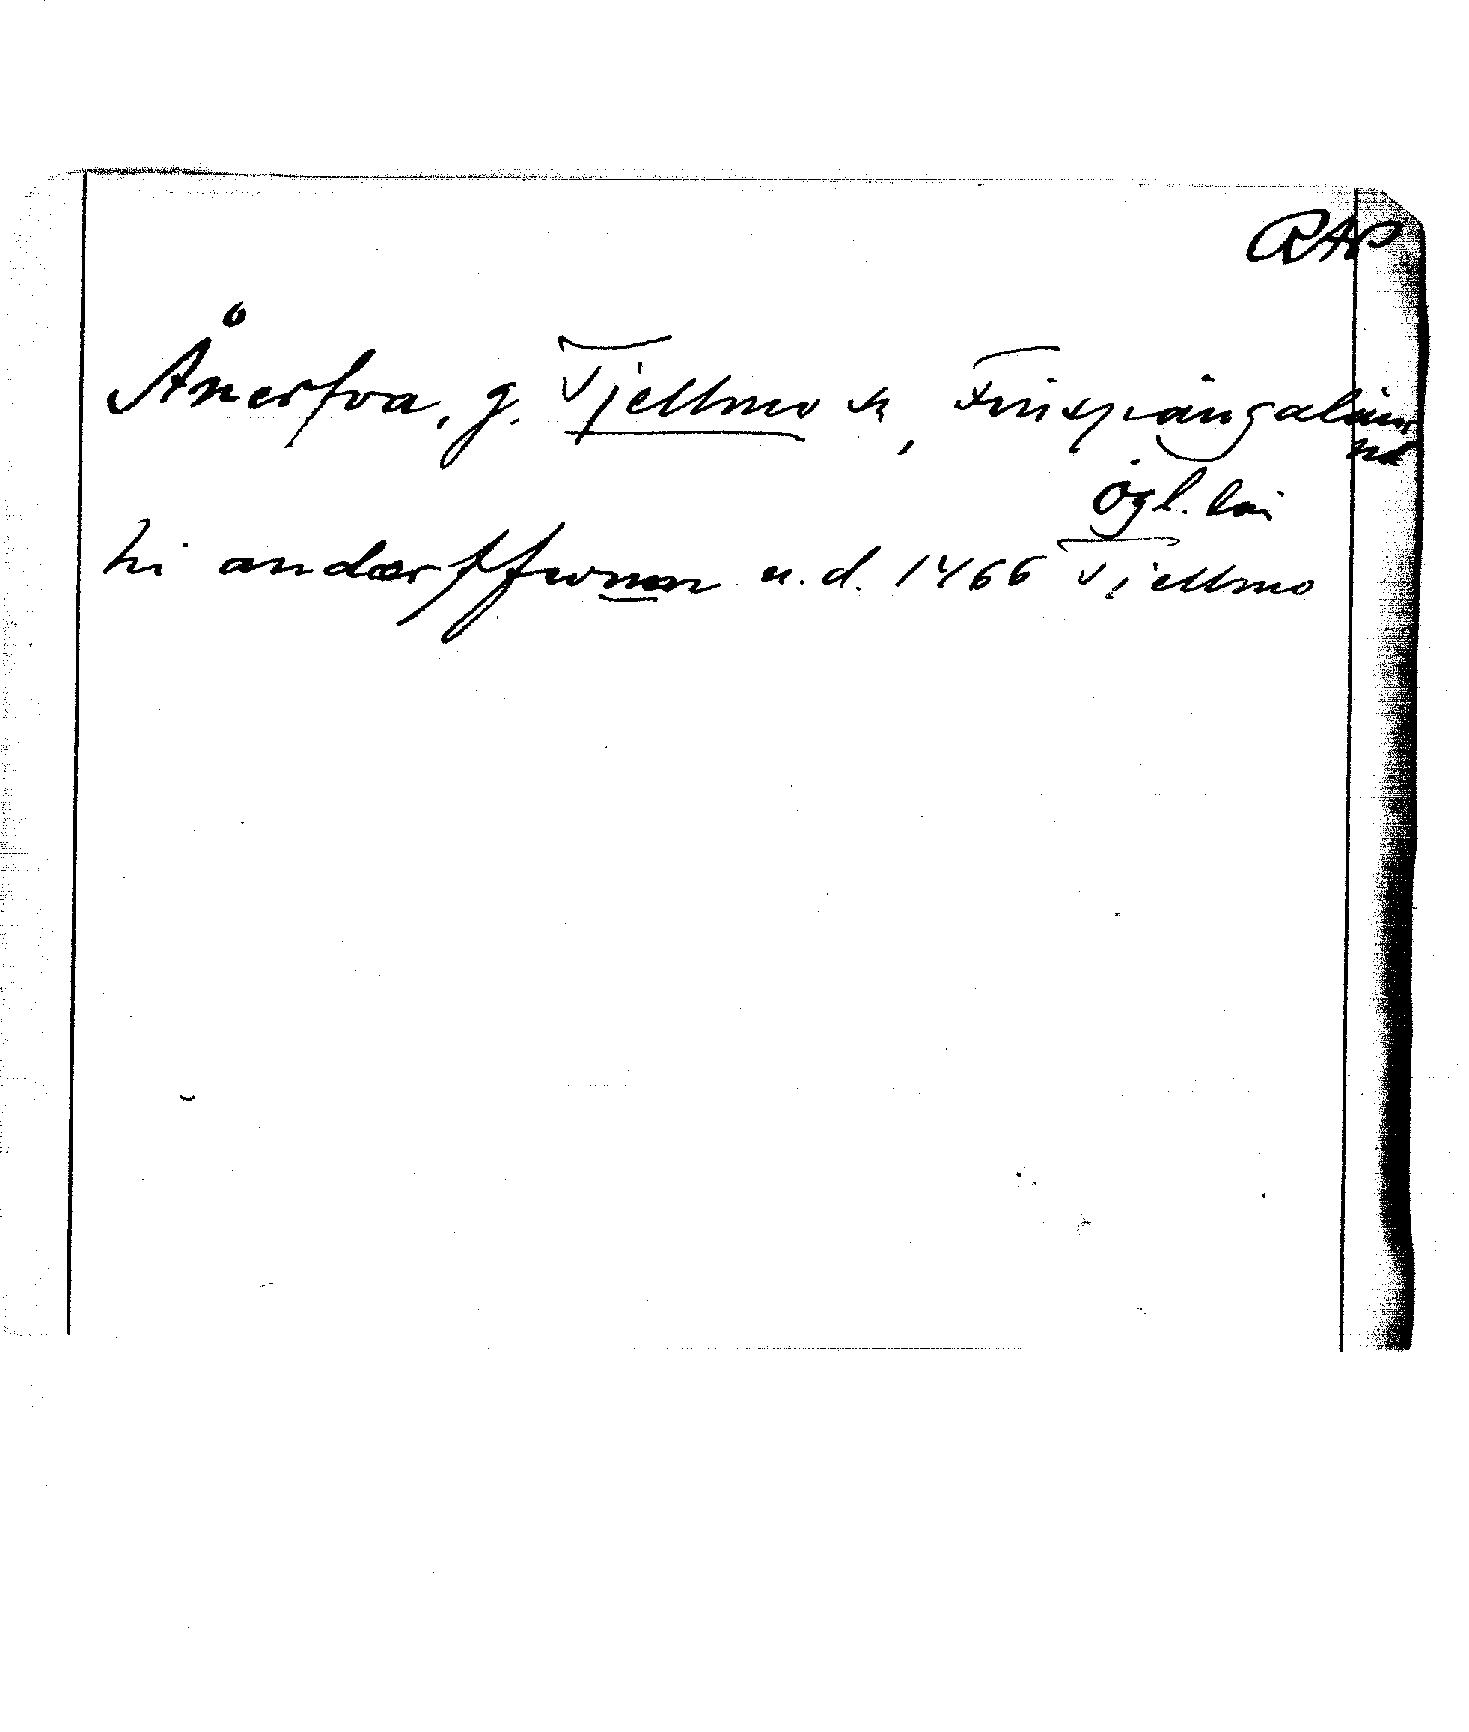 RAP
Ånerfva, g. Tjellmo sn, Finspångalän,
hd
Ögl. län
hi andærffwonom u.d. 1466 Tjellmo